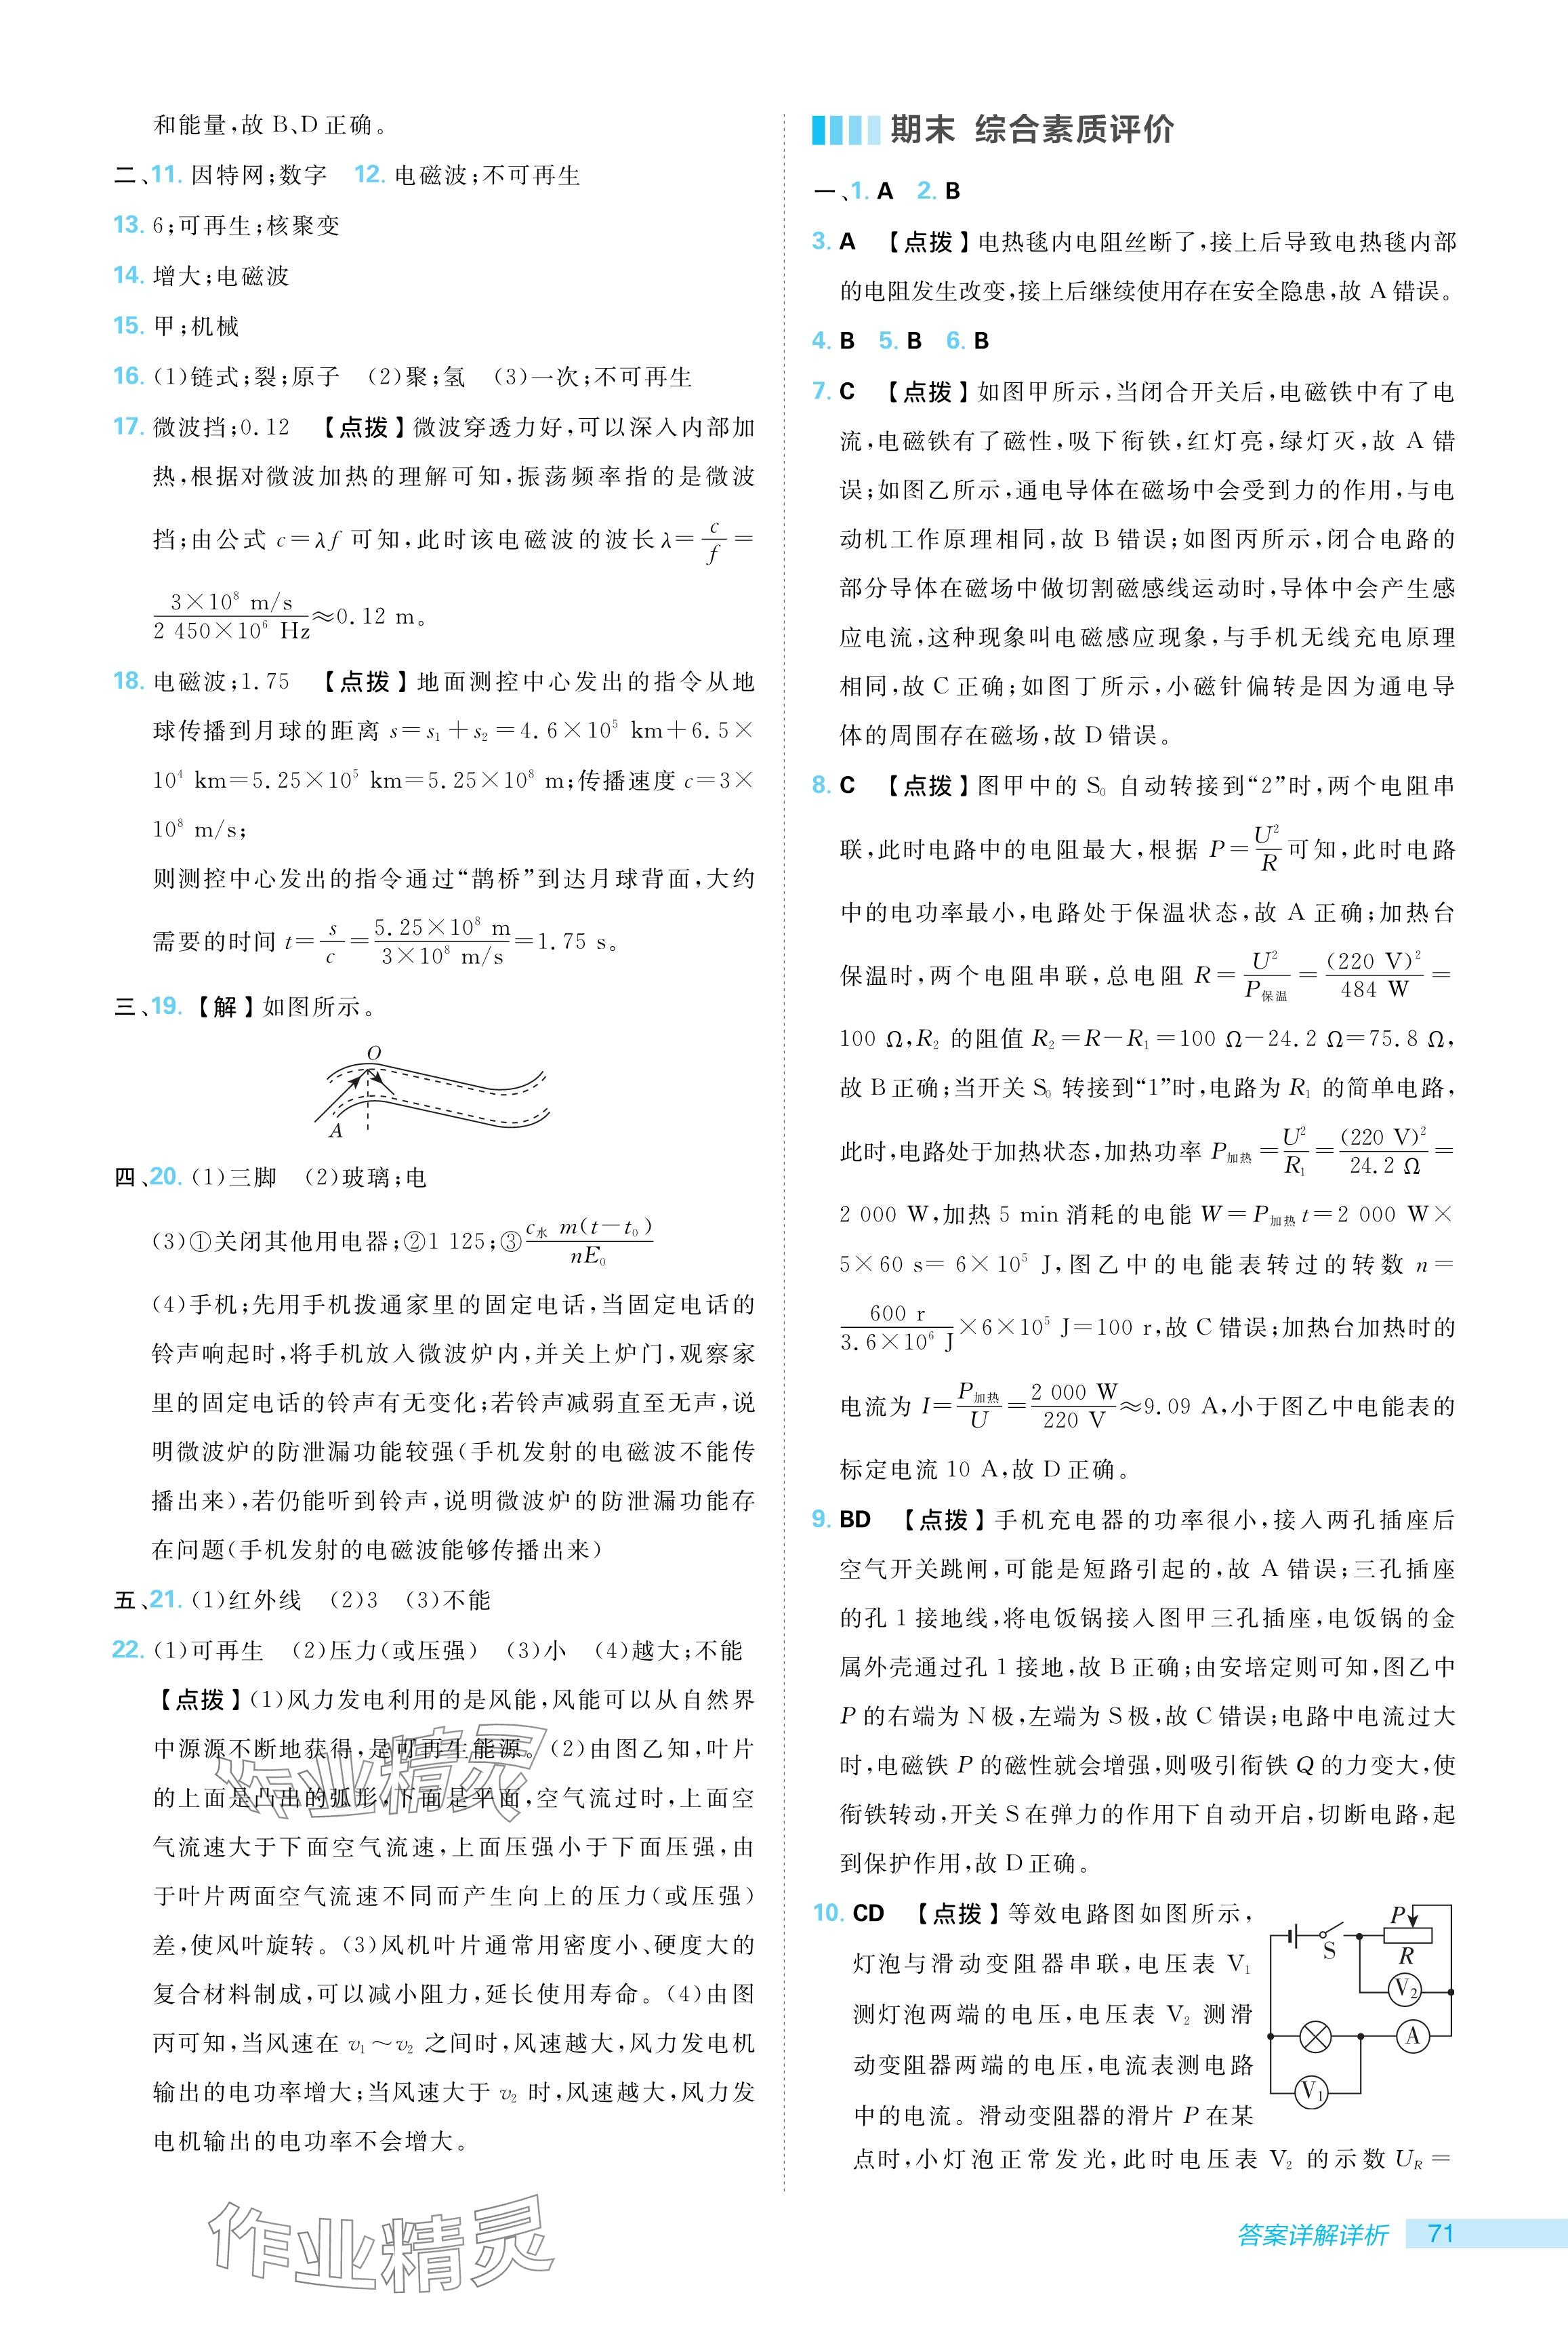 和能量,故 B、D 正确。
二、11. 因特网;数字 12. 电磁波;不可再生
13. 6;可再生;核聚变
14. 增大;电磁波
15. 甲;机械
16. (1)链式;裂;原子 (2)聚;氢 (3)一次;不可再生
17. 微波挡;0.12 【点拨】微波穿透力好,可以深入内部加
热,根据对微波加热的理解可知,振荡频率指的是微波
挡;由公式 c=λf 可知,此时该电磁波的波长 λ=c/f=
3×10⁸ m/s / 2 450×10⁶ Hz≈0.12 m。
18. 电磁波;1.75 【点拨】地面测控中心发出的指令从地
球传播到月球的距离 s=s₁+s₂=4.6×10⁵ km+6.5×
10⁴ km=5.25×10⁵ km=5.25×10⁸ m;传播速度 c=3×
10⁸ m/s;
则测控中心发出的指令通过“鹊桥”到达月球背面,大约
需要的时间 t=s/c=5.25×10⁸ m / 3×10⁸ m/s=1.75 s。
三、19.【解】如图所示。
O
A
四、20. (1)三脚 (2)玻璃;电
(3)①关闭其他用电器;②1 125;③c水 m(t-t₀)/nE₀
(4)手机;先用手机拨通家里的固定电话,当固定电话的
铃声响起时,将手机放入微波炉内,并关上炉门,观察家
里的固定电话的铃声有无变化;若铃声减弱直至无声,说
明微波炉的防泄漏功能较强(手机发射的电磁波不能传
播出来),若仍能听到铃声,说明微波炉的防泄漏功能存
在问题(手机发射的电磁波能够传播出来)
五、21. (1)红外线 (2)3 (3)不能
22. (1)可再生 (2)压力(或压强) (3)小 (4)越大;不能
【点拨】(1)风力发电利用的是风能,风能可以从自然界
中源源不断地获得,是可再生能源。(2)由图乙知,叶片
的上面是凸出的弧形,下面是平面,空气流过时,上面空
气流速大于下面空气流速,上面压强小于下面压强,由
于叶片两面空气流速不同而产生向上的压力(或压强)
差,使风叶旋转。(3)风机叶片通常用密度小、硬度大的
复合材料制成,可以减小阻力,延长使用寿命。(4)由图
丙可知,当风速在 v₁~v₂ 之间时,风速越大,风力发电机
输出的电功率增大;当风速大于 v₂ 时,风速越大,风力发
电机输出的电功率不会增大。
作业精灵
作业精灵
期末 综合素质评价
一、1. A 2. B
3. A 【点拨】电热毯内电阻丝断了,接上后导致电热毯内部
的电阻发生改变,接上后继续使用存在安全隐患,故 A 错误。
4. B 5. B 6. B
7. C 【点拨】如图甲所示,当闭合开关后,电磁铁中有了电
流,电磁铁有了磁性,吸下衔铁,红灯亮,绿灯灭,故 A 错
误;如图乙所示,通电导体在磁场中会受到力的作用,与电
动机工作原理相同,故 B 错误;如图丙所示,闭合电路的
部分导体在磁场中做切割磁感线运动时,导体中会产生感
应电流,这种现象叫电磁感应现象,与手机无线充电原理
相同,故 C 正确;如图丁所示,小磁针偏转是因为通电导
体的周围存在磁场,故 D 错误。
8. C 【点拨】图甲中的 S₀ 自动转接到“2”时,两个电阻串
联,此时电路中的电阻最大,根据 P=U²/R 可知,此时电路
中的电功率最小,电路处于保温状态,故 A 正确;加热台
保温时,两个电阻串联,总电阻 R=U²/P保温=(220 V)²/484 W=
100 Ω,R₂ 的阻值 R₂=R-R₁=100 Ω-24.2 Ω=75.8 Ω,
故 B 正确;当开关 S₀ 转接到“1”时,电路为 R₁ 的简单电路,
此时,电路处于加热状态,加热功率 P加热=U²/R₁=(220 V)²/24.2 Ω=
2 000 W,加热 5 min 消耗的电能 W=P加热t=2 000 W×
5×60 s= 6×10⁵ J,图乙中的电能表转过的转数 n=
600 r / 3.6×10⁶ J×6×10⁵ J=100 r,故 C 错误;加热台加热时的
电流为 I=P加热/U=2 000 W/220 V≈9.09 A,小于图乙中电能表的
标定电流 10 A,故 D 正确。
9. BD 【点拨】手机充电器的功率很小,接入两孔插座后
空气开关跳闸,可能是短路引起的,故 A 错误;三孔插座
的孔 1 接地线,将电饭锅接入图甲三孔插座,电饭锅的金
属外壳通过孔 1 接地,故 B 正确;由安培定则可知,图乙中
P 的右端为 N 极,左端为 S 极,故 C 错误;电路中电流过大
时,电磁铁 P 的磁性就会增强,则吸引衔铁 Q 的力变大,使
衔铁转动,开关 S 在弹力的作用下自动开启,切断电路,起
到保护作用,故 D 正确。
10. CD 【点拨】等效电路图如图所示,
灯泡与滑动变阻器串联,电压表 V₁
测灯泡两端的电压,电压表 V₂ 测滑
动变阻器两端的电压,电流表测电路
中的电流。滑动变阻器的滑片 P 在某
点时,小灯泡正常发光,此时电压表 V₂ 的示数 U_R=
P
S
R
V₂
A
V₁
答案详解详析 71